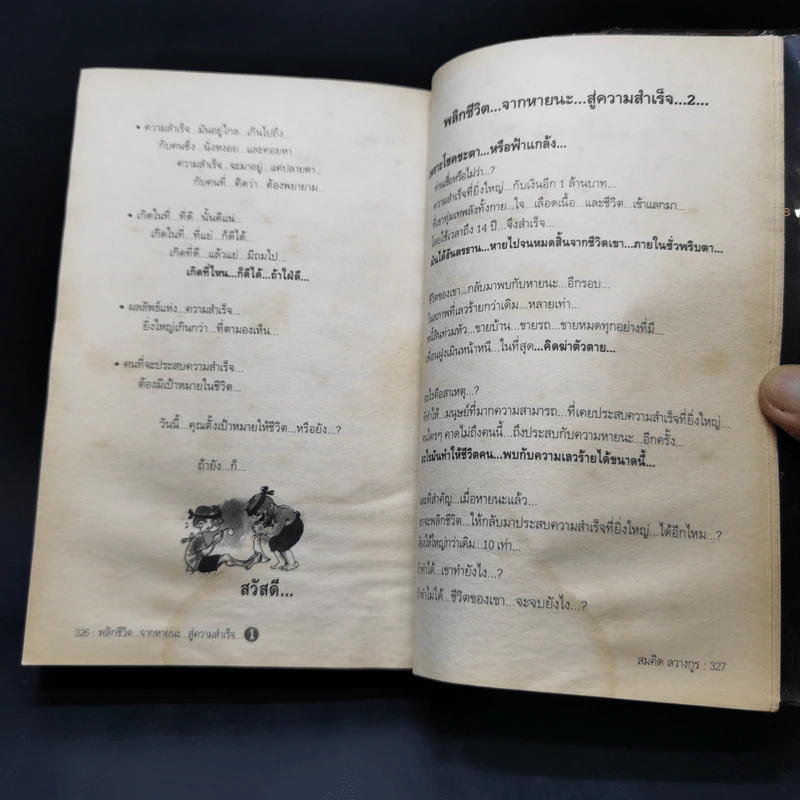 • ความสำเร็จ...มันอยู่ไกล...เกินไปถึง
กับคนซึ่ง...นั่งหงอย...และคอยหา
ความสำเร็จ...จะมาอยู่...แค่ปลายตา
กับคนที่...คิดว่า...ต้องพยายาม...
• เกิดในที่...ที่ดี...นั้นดีแน่
เกิดในที่...ที่แย่...ก็ดีได้...
เกิดที่ดี...แล้วแย่...มีถมไป...
เกิดที่ไหน...ก็ดีได้...ถ้าใฝ่ดี...
• ผลลัพธ์แห่ง...ความสำเร็จ...
ยิ่งใหญ่เกินกว่า...ที่ตามองเห็น...
• คนที่จะประสบความสำเร็จ...
ต้องมีเป้าหมายในชีวิต...
วันนี้...คุณตั้งเป้าหมายให้ชีวิต...หรือยัง...?
ถ้ายัง...ก็...
สวัสดี...
326 : พลิกชีวิต...จากหายนะ...สู่ความสำเร็จ...1
พลิกชีวิต...จากหายนะ...สู่ความสำเร็จ...2...
เพราะโชคชะตา...หรือฟ้าแกล้ง...
ท่านเชื่อหรือไม่ว่า...?
ความสำเร็จที่ยิ่งใหญ่...กับเงินอีก 1 ล้านบาท...
ที่เขาทุ่มเทพลังทั้งกาย...ใจ...เลือดเนื้อ...และชีวิต...เข้าแลกมา...
โดยใช้เวลาถึง 14 ปี...จึงสำเร็จ...
มันได้อันตรธาน...หายไปจนหมดสิ้นจากชีวิตเขา...ภายในชั่วพริบตา...
ชีวิตของเขา...กลับมาพบกับหายนะ...อีกรอบ...
ในสภาพที่เลวร้ายกว่าเดิม...หลายเท่า...
หนี้สินท่วมหัว...ขายบ้าน...ขายรถ...ขายหมดทุกอย่างที่มี...
เพื่อนฝูงเมินหน้าหนี...ในที่สุด...คิดฆ่าตัวตาย...
อะไรคือสาเหตุ...?
ที่ทำให้...มนุษย์ที่มากความสามารถ...ที่เคยประสบความสำเร็จที่ยิ่งใหญ่...
คนใครๆ คาดไม่ถึงคนนี้...ถึงประสบกับความหายนะ...อีกครั้ง...
อะไรมันทำให้ชีวิตคน...พบกับความเลวร้ายได้ขนาดนี้...
และที่สำคัญ...เมื่อหายนะแล้ว...
เขาจะพลิกชีวิต...ให้กลับมาประสบความสำเร็จที่ยิ่งใหญ่...ได้อีกไหม...?
ต้องให้ใหญ่กว่าเดิม...10 เท่า...
ถ้าทำได้...เขาทำยังไง...?
ถ้าทำไม่ได้...ชีวิตของเขา...จะจบยังไง...?
สมคิด ลวางกูร : 327